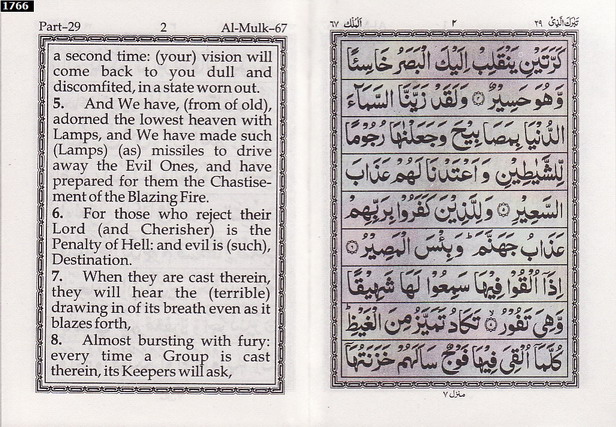 1766
Part–29 2 Al-Mulk–67
a second time: (your) vision will
come back to you dull and
discomfited, in a state worn out.
5. And We have, (from of old),
adorned the lowest heaven with
Lamps, and We have made such
(Lamps) (as) missiles to drive
away the Evil Ones, and have
prepared for them the Chastise-
ment of the Blazing Fire.
6. For those who reject their
Lord (and Cherisher) is the
Penalty of Hell: and evil is (such),
Destination.
7. When they are cast therein,
they will hear the (terrible)
drawing in of its breath even as it
blazes forth,
8. Almost bursting with fury:
every time a Group is cast
therein, its Keepers will ask,
تبٰرك الذی ٢٩ ٢ الملك ٦٧
كَرَّتَيْنِ يَنْقَلِبْ اِلَيْكَ الْبَصَرُ خَاسِئًا
وَّهُوَ حَسِيْرٌ ۝٤ وَلَقَدْ زَيَّنَّا السَّمَآءَ
الدُّنْيَا بِمَصَابِيْحَ وَجَعَلْنٰهَا رُجُوْمًا
لِّلشَّيٰطِيْنِ وَاَعْتَدْنَا لَهُمْ عَذَابَ
السَّعِيْرِ ۝٥ وَلِلَّذِيْنَ كَفَرُوْا بِرَبِّهِمْ
عَذَابُ جَهَنَّمَ ؕ وَبِئْسَ الْمَصِيْرُ ۝٦
اِذَاۤ اُلْقُوْا فِيْهَا سَمِعُوْا لَهَا شَهِيْقًا
وَّهِىَ تَفُوْرُ ۝٧ تَكَادُ تَمَيَّزُ مِنَ الْغَيْظِ ؕ
كُلَّمَاۤ اُلْقِىَ فِيْهَا فَوْجٌ سَاَلَهُمْ خَزَنَتُهَاۤ
منزل ٧